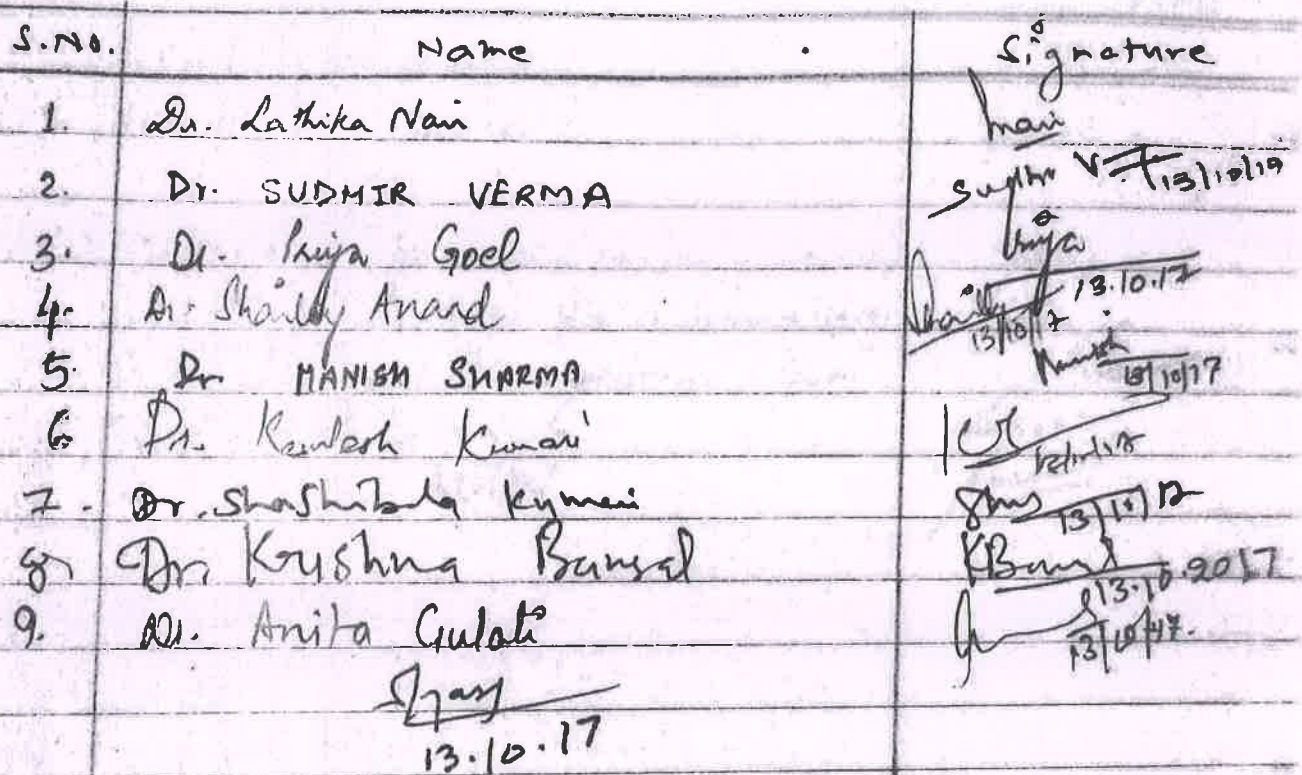 S.No. Name Signature
1. Dr. Lathika Nair Lnair
2. Dr. SUDHIR VERMA Sudhir V 13/10/17
3. Dr. Priya Goel Priya 13.10.17
4. Dr. Shailly Anand Shailly 13/10/17
5. Dr MANISH SHARMA Manish 13/10/17
6. Dr. Kamlesh Kumari 13/10/17
7. Dr. Shashibala Kumari Shas 13/10/17
8. Dr. Krishna Bansal KBansal 13.10.2017
9. Dr. Anita Gulati 13/10/17.
13.10.17